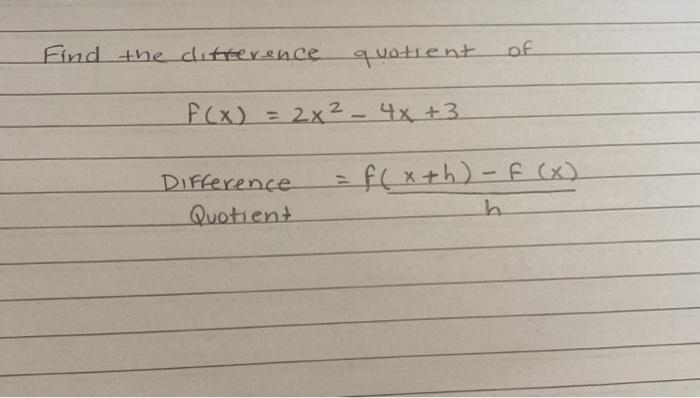 Find the difference quotient of
f(x) = 2x² - 4x + 3
Difference = f(x+h) - f(x)
Quotient h